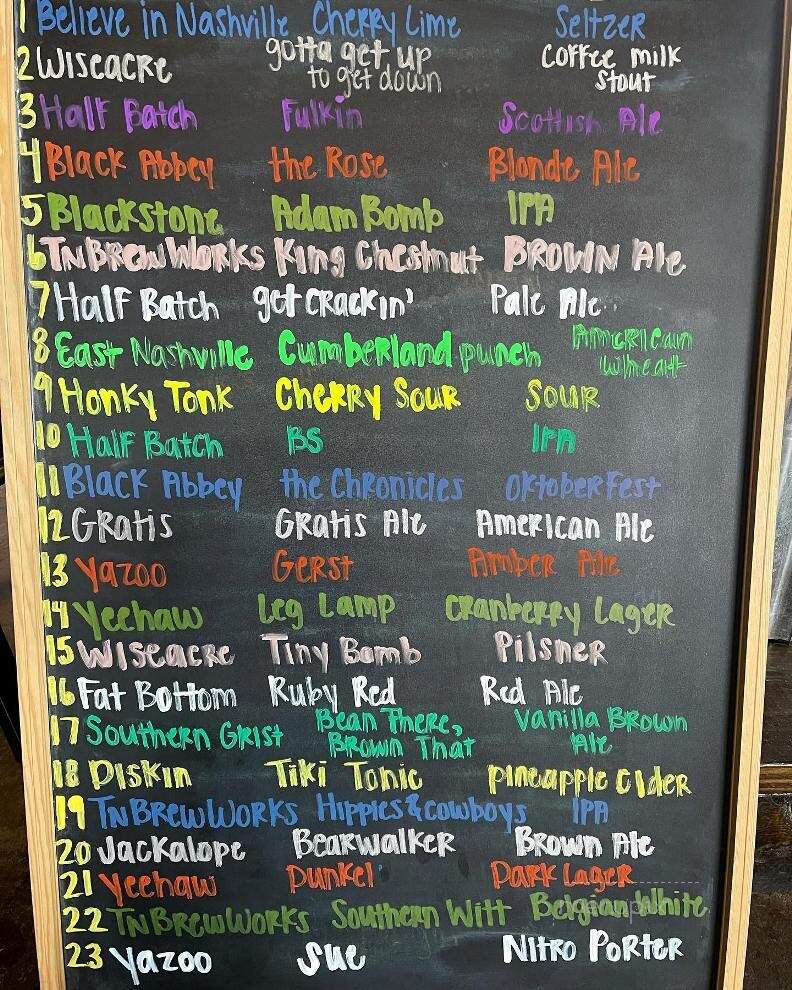 1 Believe in Nashville Cherry Lime Seltzer
2 Wiseacre gotta get up to get down Coffee milk stout
3 Half Batch Fulkin Scottish Ale
4 Black Abbey the Rose Blonde Ale
5 Blackstone Adam Bomb IPA
6 TN BREW WORKS King Chestnut BROWN Ale
7 Half Batch get crackin' Pale Ale
8 East Nashville Cumberland punch American wheat
9 Honky Tonk Cherry Sour SOUR
10 Half Batch BS IPA
11 Black Abbey the Chronicles OktoberFest
12 Gratis Gratis Ale American Ale
13 Yazoo Gerst Amber Ale
14 Yeehaw Leg Lamp Cranberry Lager
15 Wiseacre Tiny Bomb Pilsner
16 Fat Bottom Ruby Red Red Ale
17 Southern Grist Bean There, Brown That Vanilla Brown Ale
18 Diskin Tiki Tonic pineapple cider
19 TN BREW WORKS Hippies & cowboys IPA
20 Jackalope Bearwalker Brown Ale
21 Yeehaw Dunkel Dark Lager
22 TN BREW WORKS Southern Witt Belgian White
23 Yazoo Sue Nitro Porter